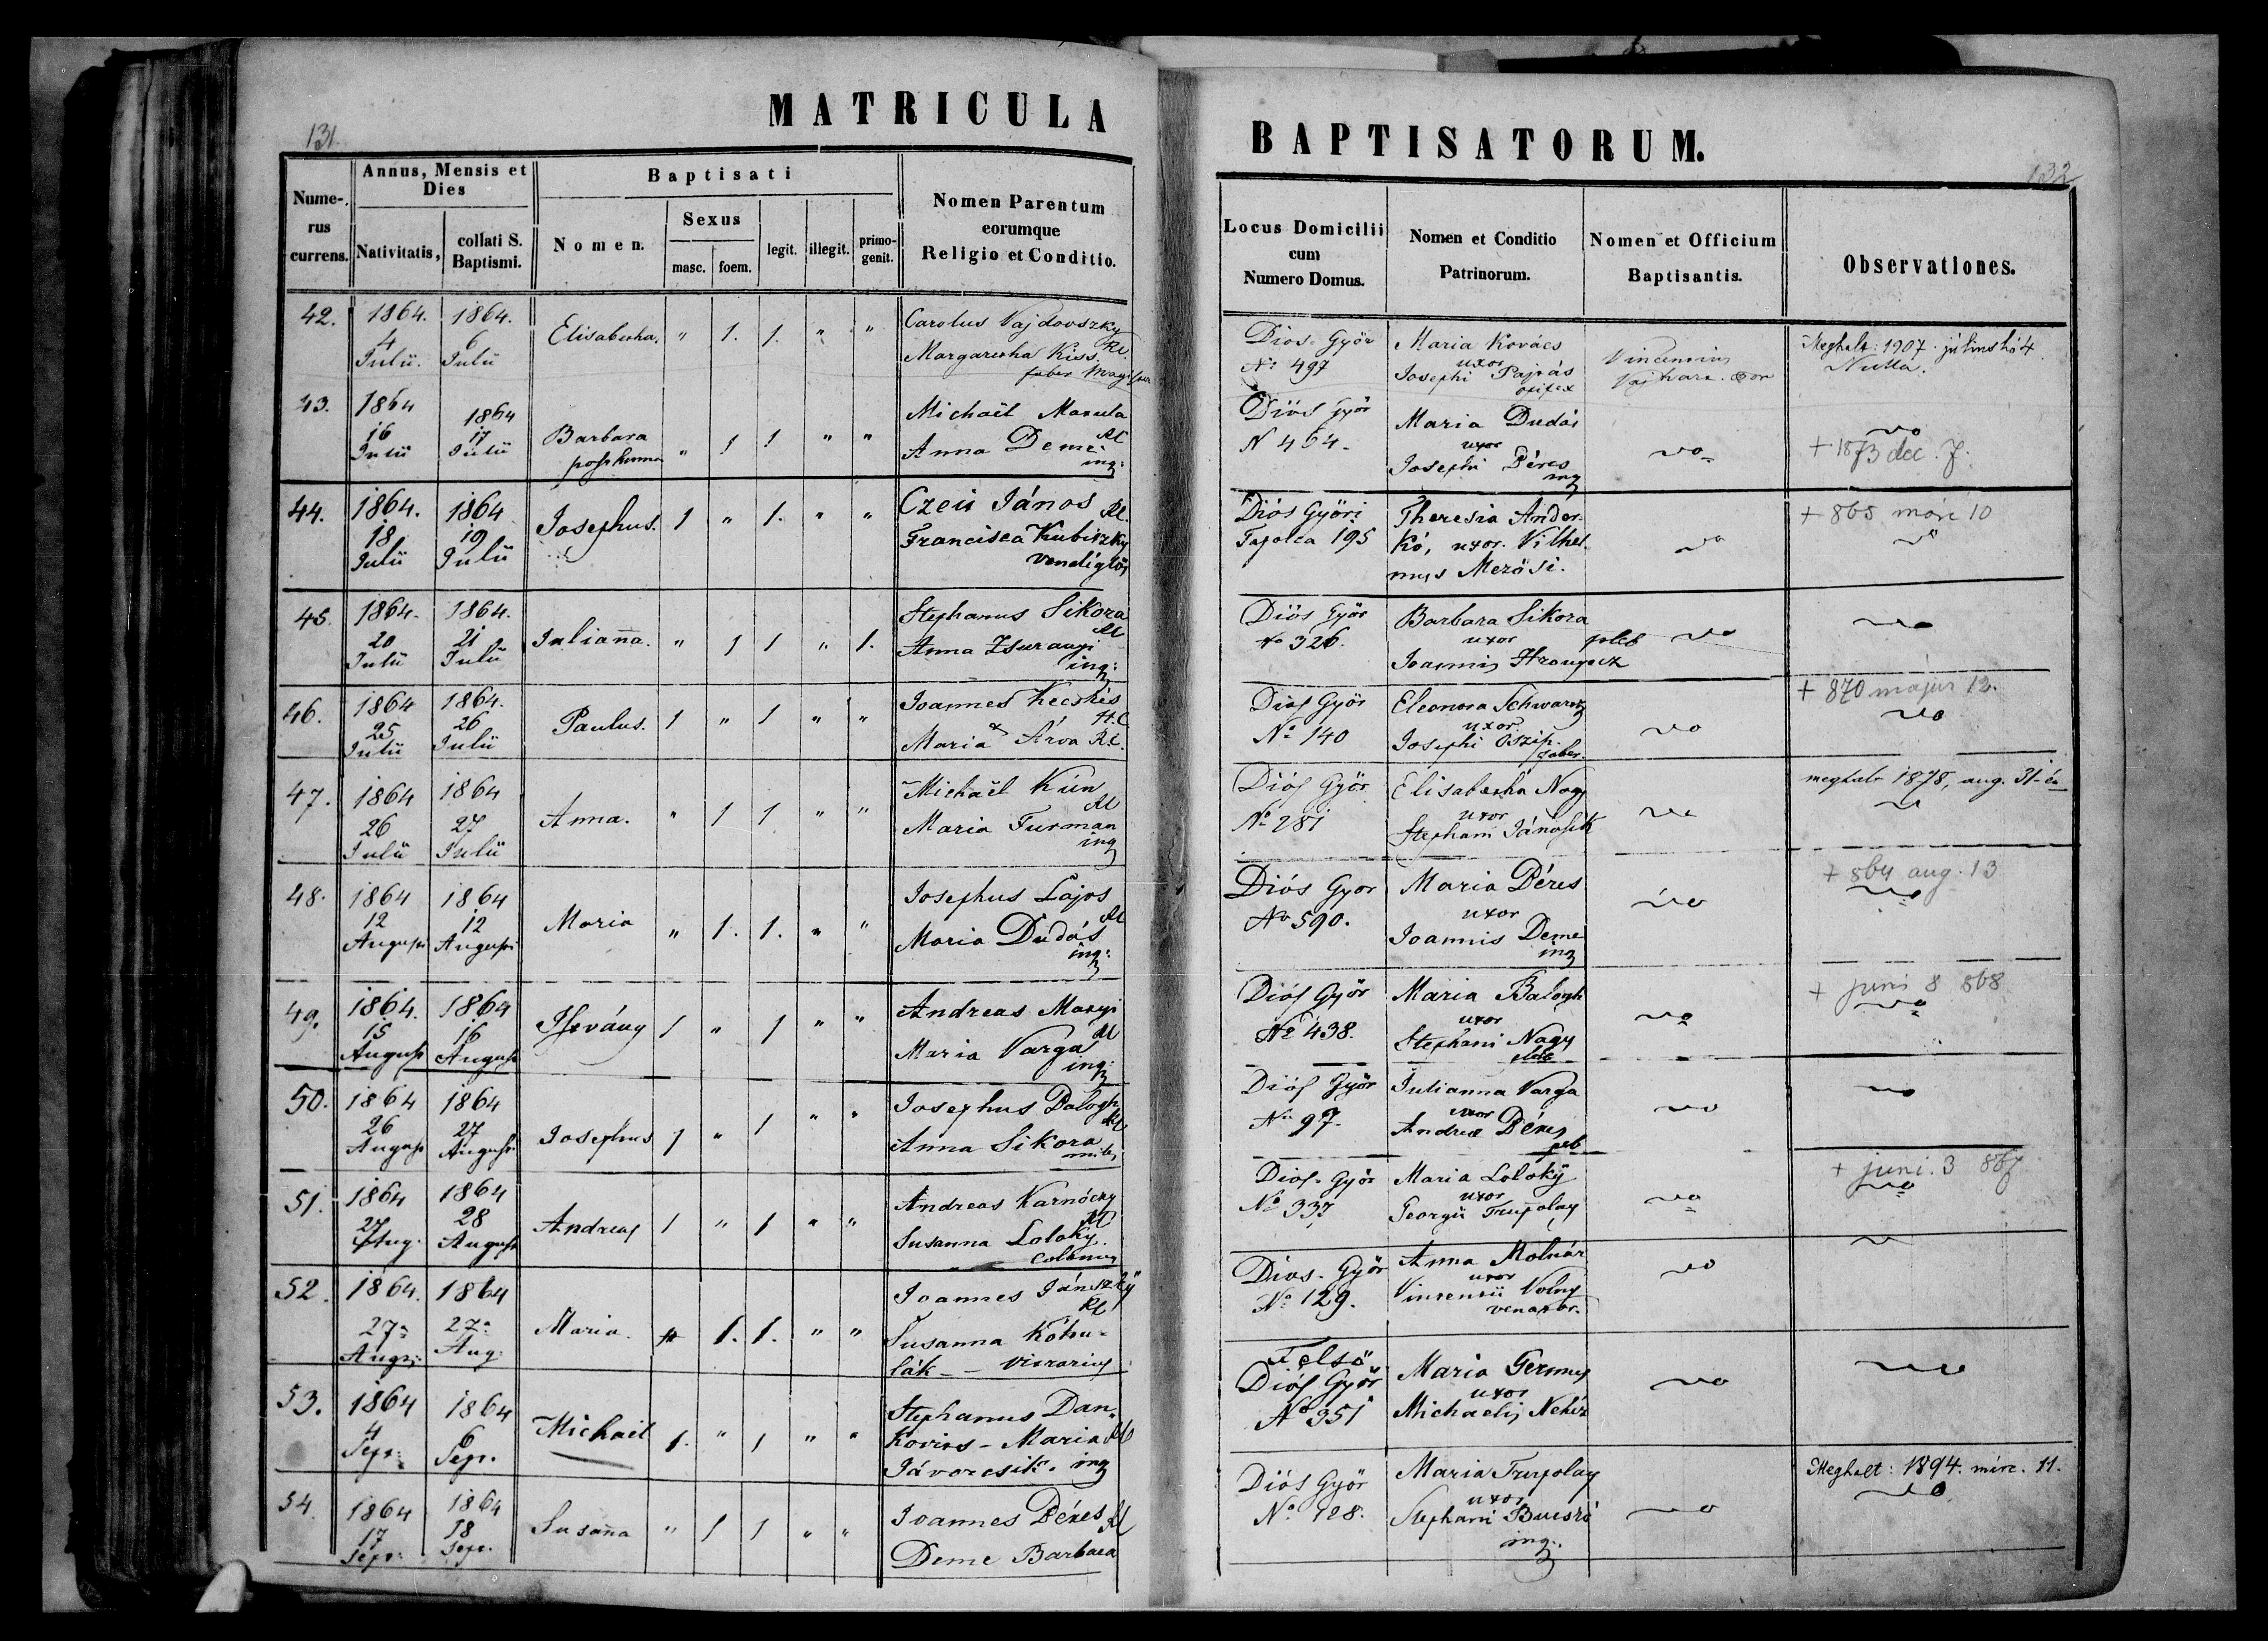 MATRICULA
131.
Numerus currens.
Annus, Mensis et Dies
Nativitatis,
collati S. Baptismi.
Baptisati
Nomen.
Sexus
masc.
foem.
legit.
illegit.
primogenit.
Nomen Parentum
eorumque
Religio et Conditio.
42. 1864. 4 Julii. 1864. 6 Julii Elisabetha. " 1. 1. " "
Carolus Vajdovszky
RC.
Margaretha Kiss.
faber
43. 1864 16 Julii 1864 17 Julii Barbara posthuma " 1 1 " "
Michaël Manula
RC
Anna Deme
inq:
44. 1864. 18 Julii 1864 19 Julii Josephus. 1 " 1. " "
Czeis János RC.
Francisca Kubitzky
vendéglős
45. 1864. 20 Julii 1864. 21 Julii Julianna. " 1 1 " 1.
Stephanus Sikora
RC
Anna Zsuranyi
inq:
46. 1864 25 Julii 1864. 26 Julii Paulus. 1 " 1 " "
Joannes Kecskés
H.C
Maria Árva RC.
47. 1864 26 Julii 1864 27 Julii Anna. " 1 1 " "
Michaël Kún
RC
Maria Furman
inq
48. 1864 12 August 1864 12 August Maria " 1. 1. " "
Josephus Lajos
RC
Maria Dudás
inq:
49. 1864. 15 August 1864 16 August István 1 " 1 " "
Andreas Monyi
RC
Maria Varga
inq:
50. 1864 26 August 1864 27 August Josephus 1 " 1 " "
Josephus Balogh
RC
Anna Sikora
miles
51. 1864 27 Aug. 1864 28 August Andreas 1 " 1 " "
Andreas Karnóczy
RC
Susanna Loloky.
Colonus
52. 1864. 27a Augs: 1864 27a Aug: Maria. " 1. 1. " "
Joannes Jánszky
RC
Susanna Kohu-
lák - - vitrarius
53. 1864 4 Sept: 1864 6 Sept. Michaël 1. " 1 " "
Stephanus Dan-
kovits - Maria RC
Jávorcsik. inq
54. 1864 17 Sept: 1864 18 Sept. Susanna " 1 1 " "
Joannes Béres RC
Deme Barbara
BAPTISATORUM.
132
Locus Domicilii
cum
Numero Domus.
Nomen et Conditio
Patrinorum.
Nomen et Officium
Baptisantis.
Observationes.
Diós-Győr
No 497
Maria Kovács
uxor
Josephi Pajtás
opifex
Vincentius
Meghalt: 1907. julius hó 4
Nulla.
Diós Győr
N 464-
Maria Dudás
uxor
Josephi Béres
inq
+ 1873 dec. 7.
Diós Győri
Tapolca 195
Theresia Ander-
kó, uxor. Vilhel-
mus Mezősi.
+ 865 márc 10
Diós Győr
No 326.
Barbara Sikora
uxor
Joannis Hronyecz
pleb
Diós Győr
No 140
Eleonora Schwartz
uxor
Josephi Oszip.
faber.
+ 870 majus 12.
Diós Győr
No 281
Elisabetha Nagy
uxor
Stephani Jánosik
meghalt 1878, aug. 31-én
Diós Gyor
No 590.
Maria Béres
uxor
Joannis Deme
inq
+ 864 aug. 13
Diós Győr
No 438.
Maria Balogh
uxor
Stephani Nagy
pleb
+ juni 8 868
Diós Győr
No 97.
Julianna Varga
uxor
Andreæ Béres
pleb
Diós-Győr
No 337
Maria Loloky
uxor
Georgii Trupolay
+ juni. 3 867
Diós-Győr
No 129.
Anna Molnár
uxor
Vinsensii Volny
venator.
Felső
Diós Győr
No 351
Maria Germus
uxor
Michaelis Nehéz
Diós Győr
No 128.
Maria Trupolay
uxor
Stephani Buesko
inq.
Meghalt: 1894. márc. 11.